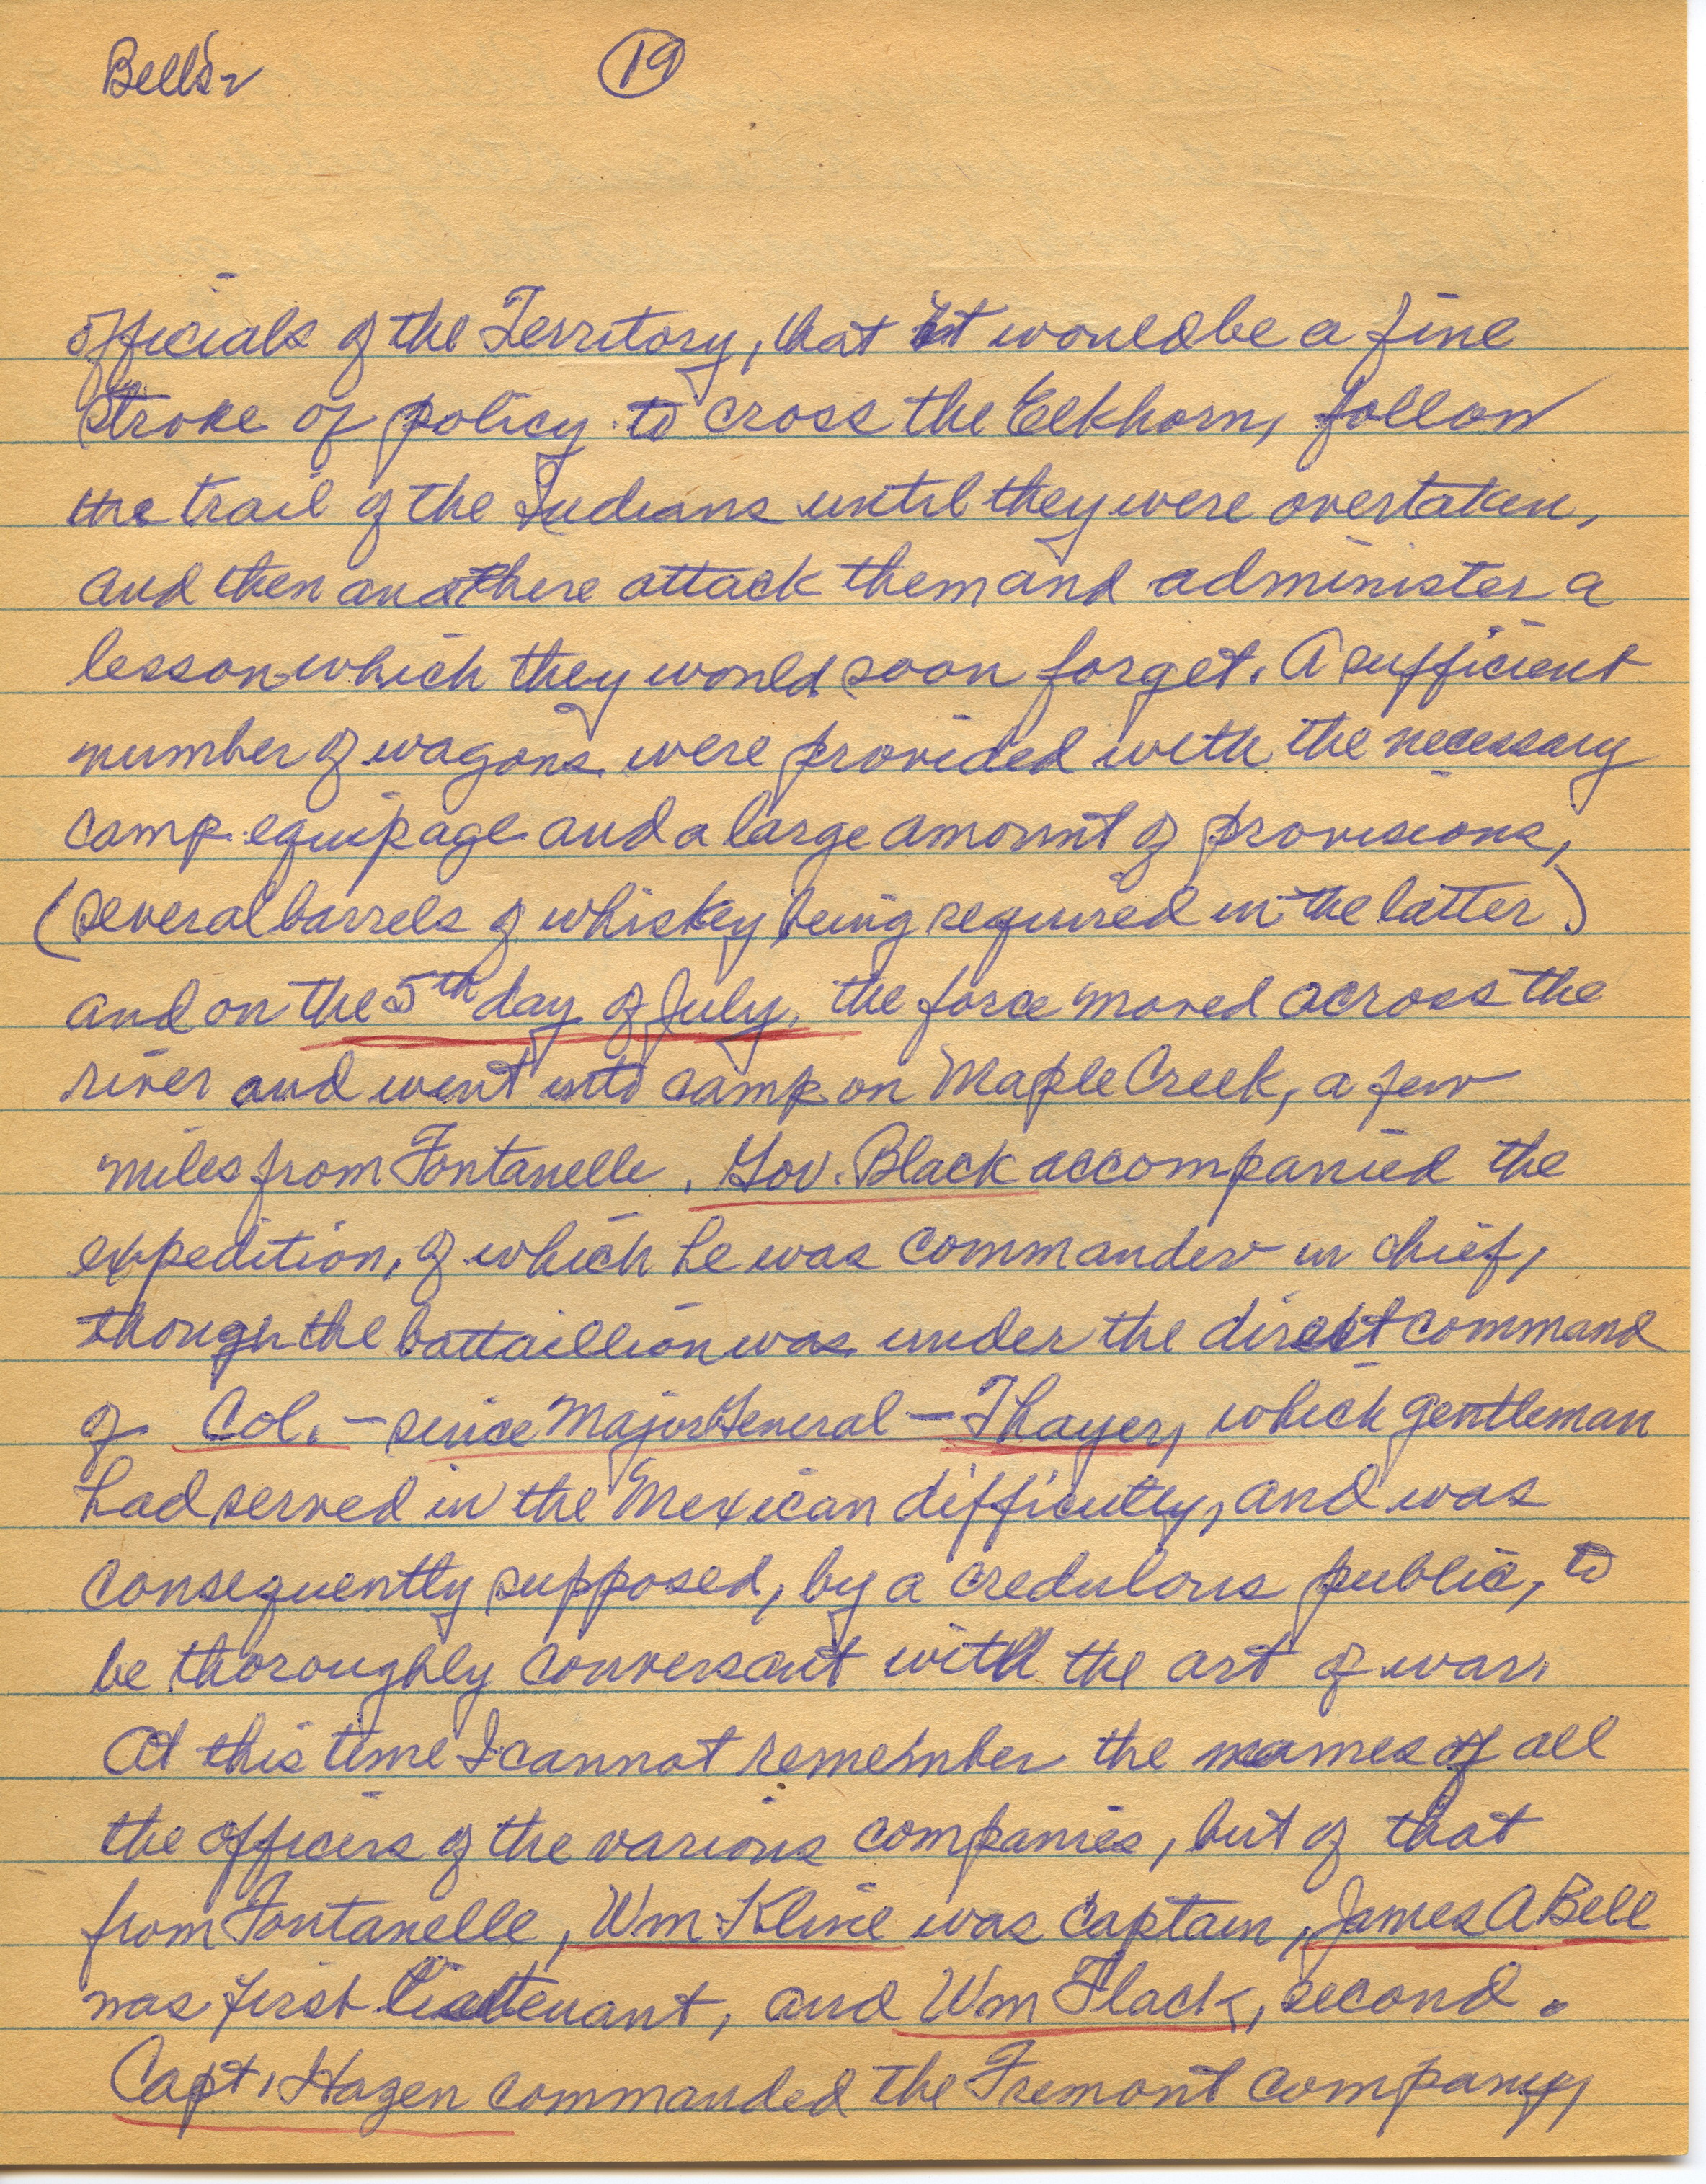 Bell's
19
officials of the Territory, that it would be a fine
stroke of policy to cross the Elkhorn, follow
the trail of the Indians until they were overtaken,
and then and there attack them and administer a
lesson which they would soon forget. A sufficient
number of wagons were provided with the necessary
camp equipage and a large amount of provisions,
(several barrels of whiskey being required in the latter)
and on the 5th day of July, the force moved across the
river and went into camp on Maple Creek, a few
miles from Fontanelle. Gov. Black accompanied the
expedition, of which he was commander in chief,
though the battaillion was under the direct command
of Col. - since Major General - Thayer, which gentleman
had served in the Mexican difficulty, and was
consequently supposed, by a credulous public, to
be thoroughly conversant with the art of war.
At this time I cannot remember the names of all
the officers of the various companies, but of that
from Fontanelle, Wm Kline was captain, James A Bell
was first lieutenant, and Wm Flack, second.
Capt. Hazen commanded the Fremont company,